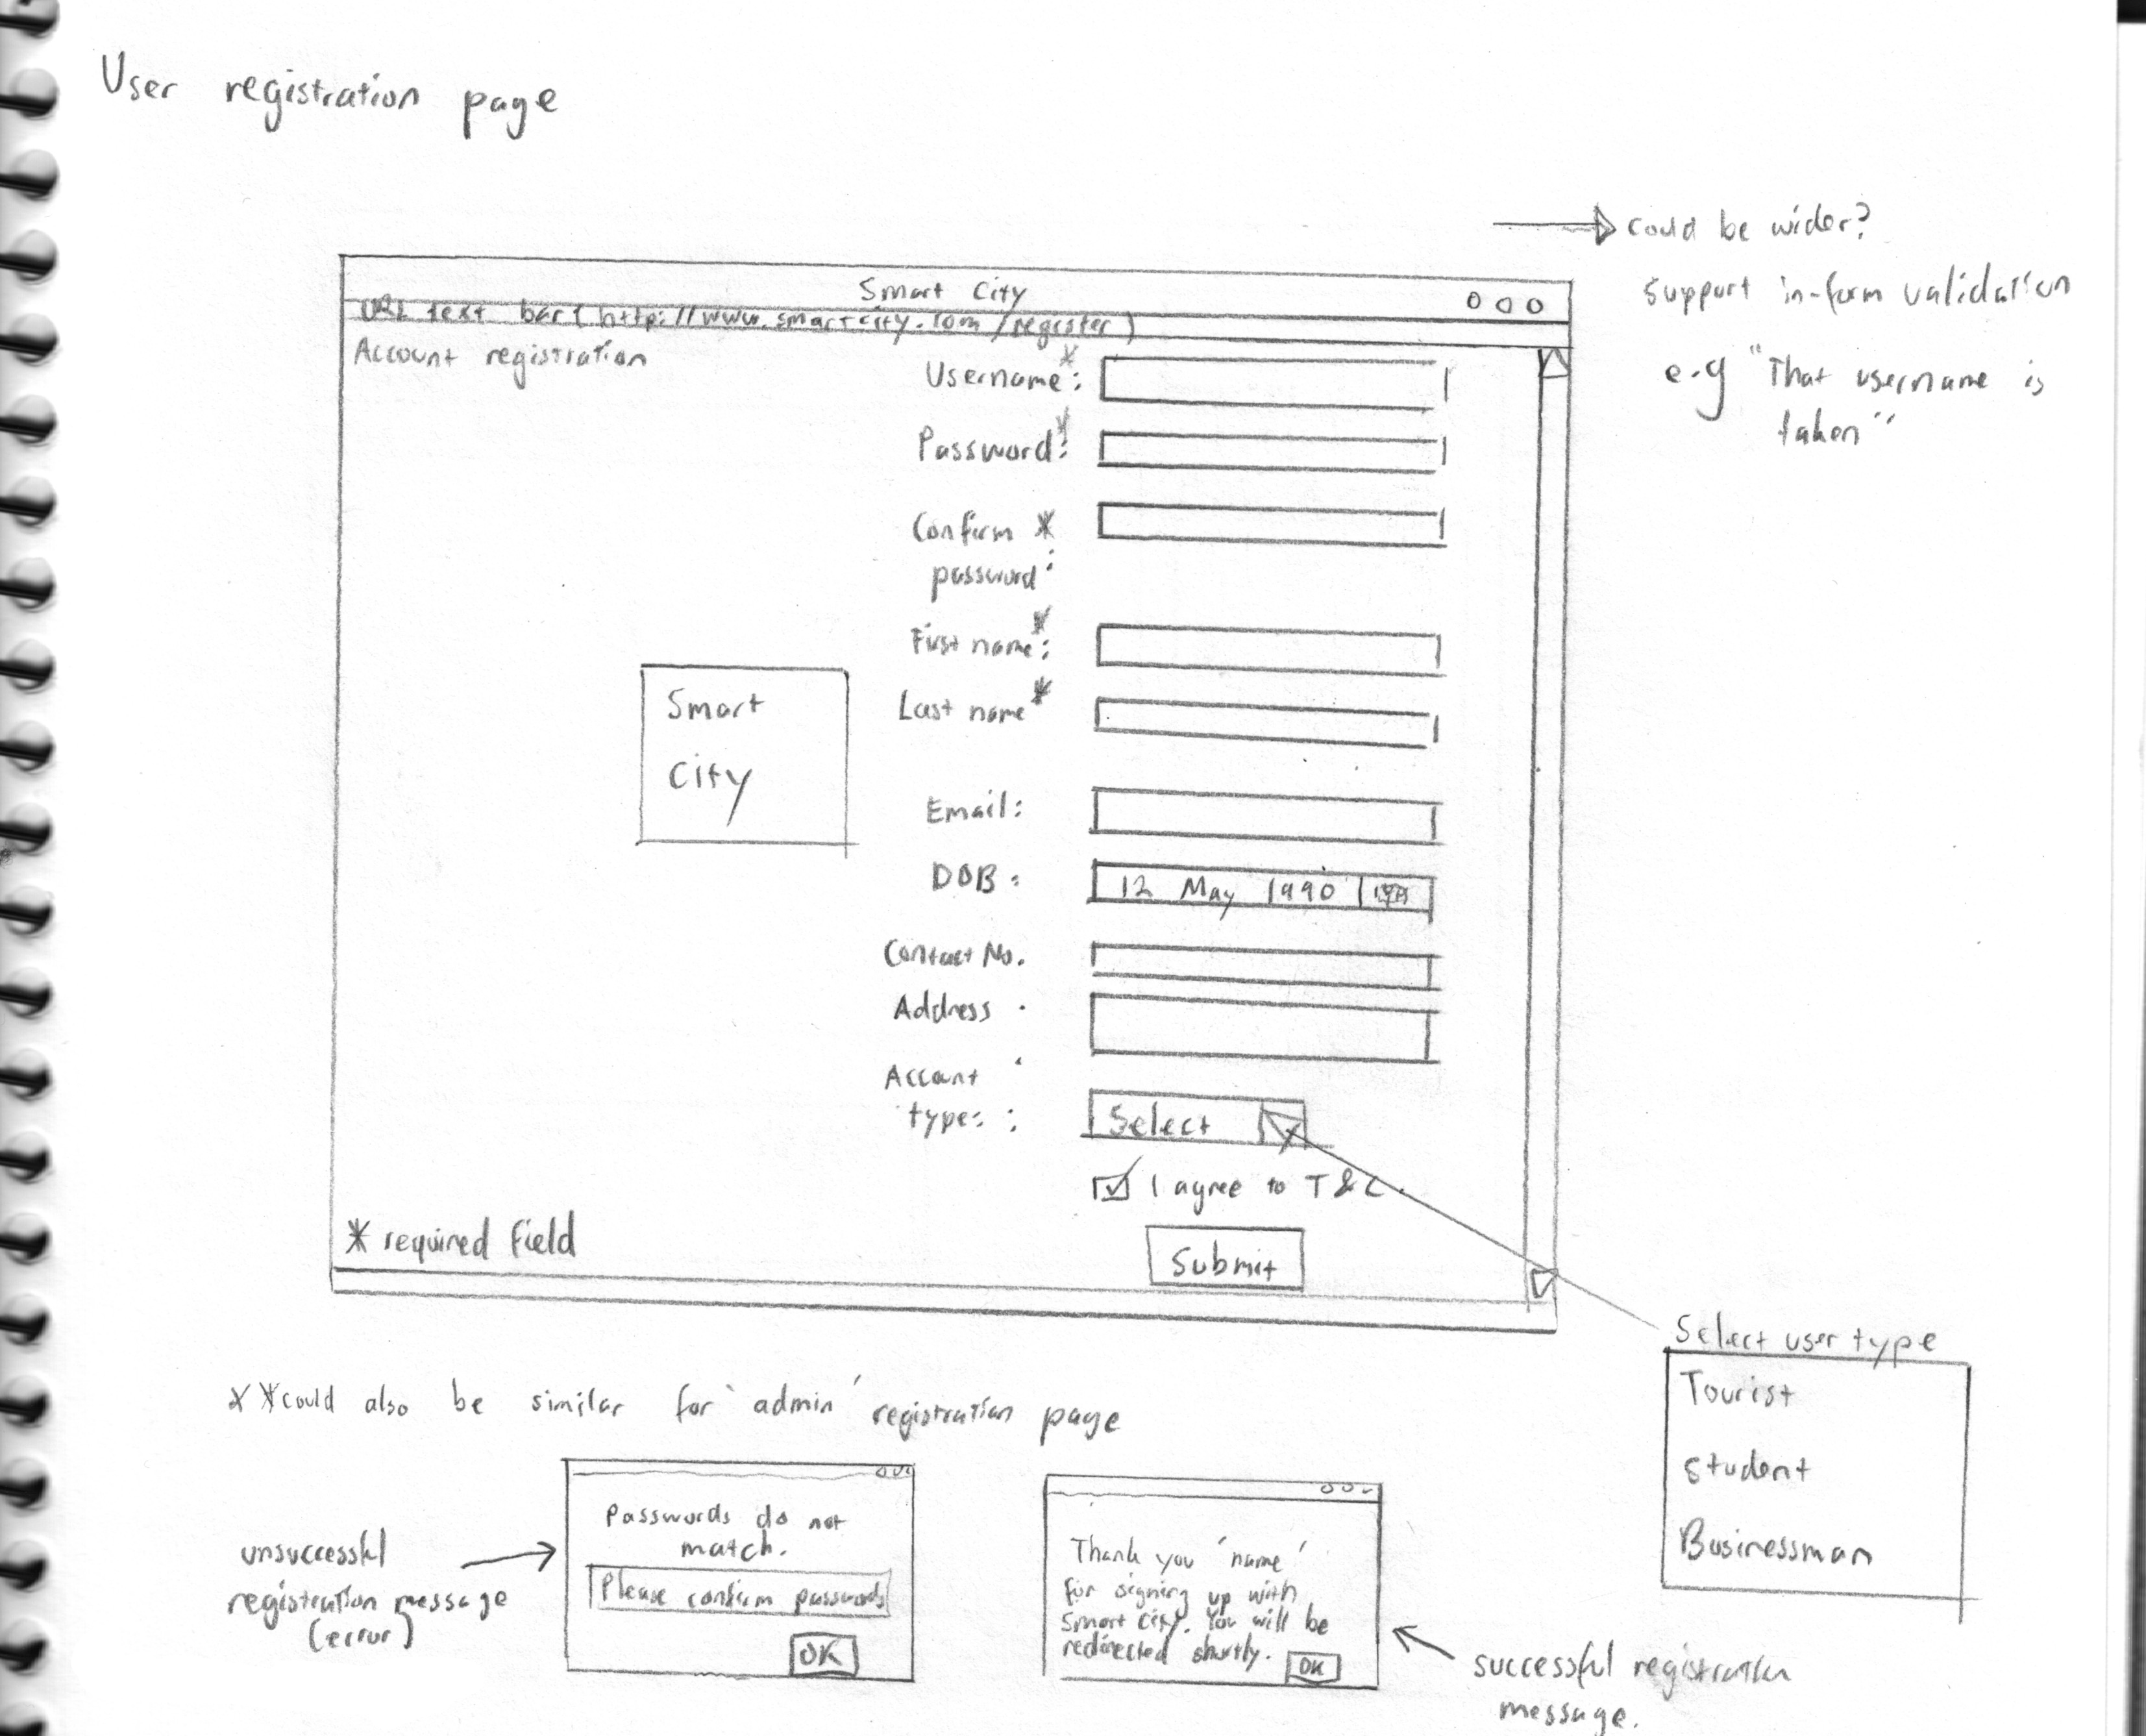 User registration page
→ Could be wider?
support in-form validation
e.g "That username is
taken"
Smart City
URL text bar (http://www.smartcity.com/register)
Account registration
Username*:
Password*:
Confirm *
password:
First name*:
Last name*
Smart
City
Email:
DOB:
12 May 1990
Contact No.
Address
Account
type:
Select
I agree to T&C.
* required field
Submit
Select user type
Tourist
Student
Businessman
**could also be similar for 'admin' registration page
unsuccessful
registration message
(error)
Passwords do not
match.
Please confirm passwords
OK
Thank you 'name'
for signing up with
Smart City. You will be
redirected shortly.
OK
successful registration
message.